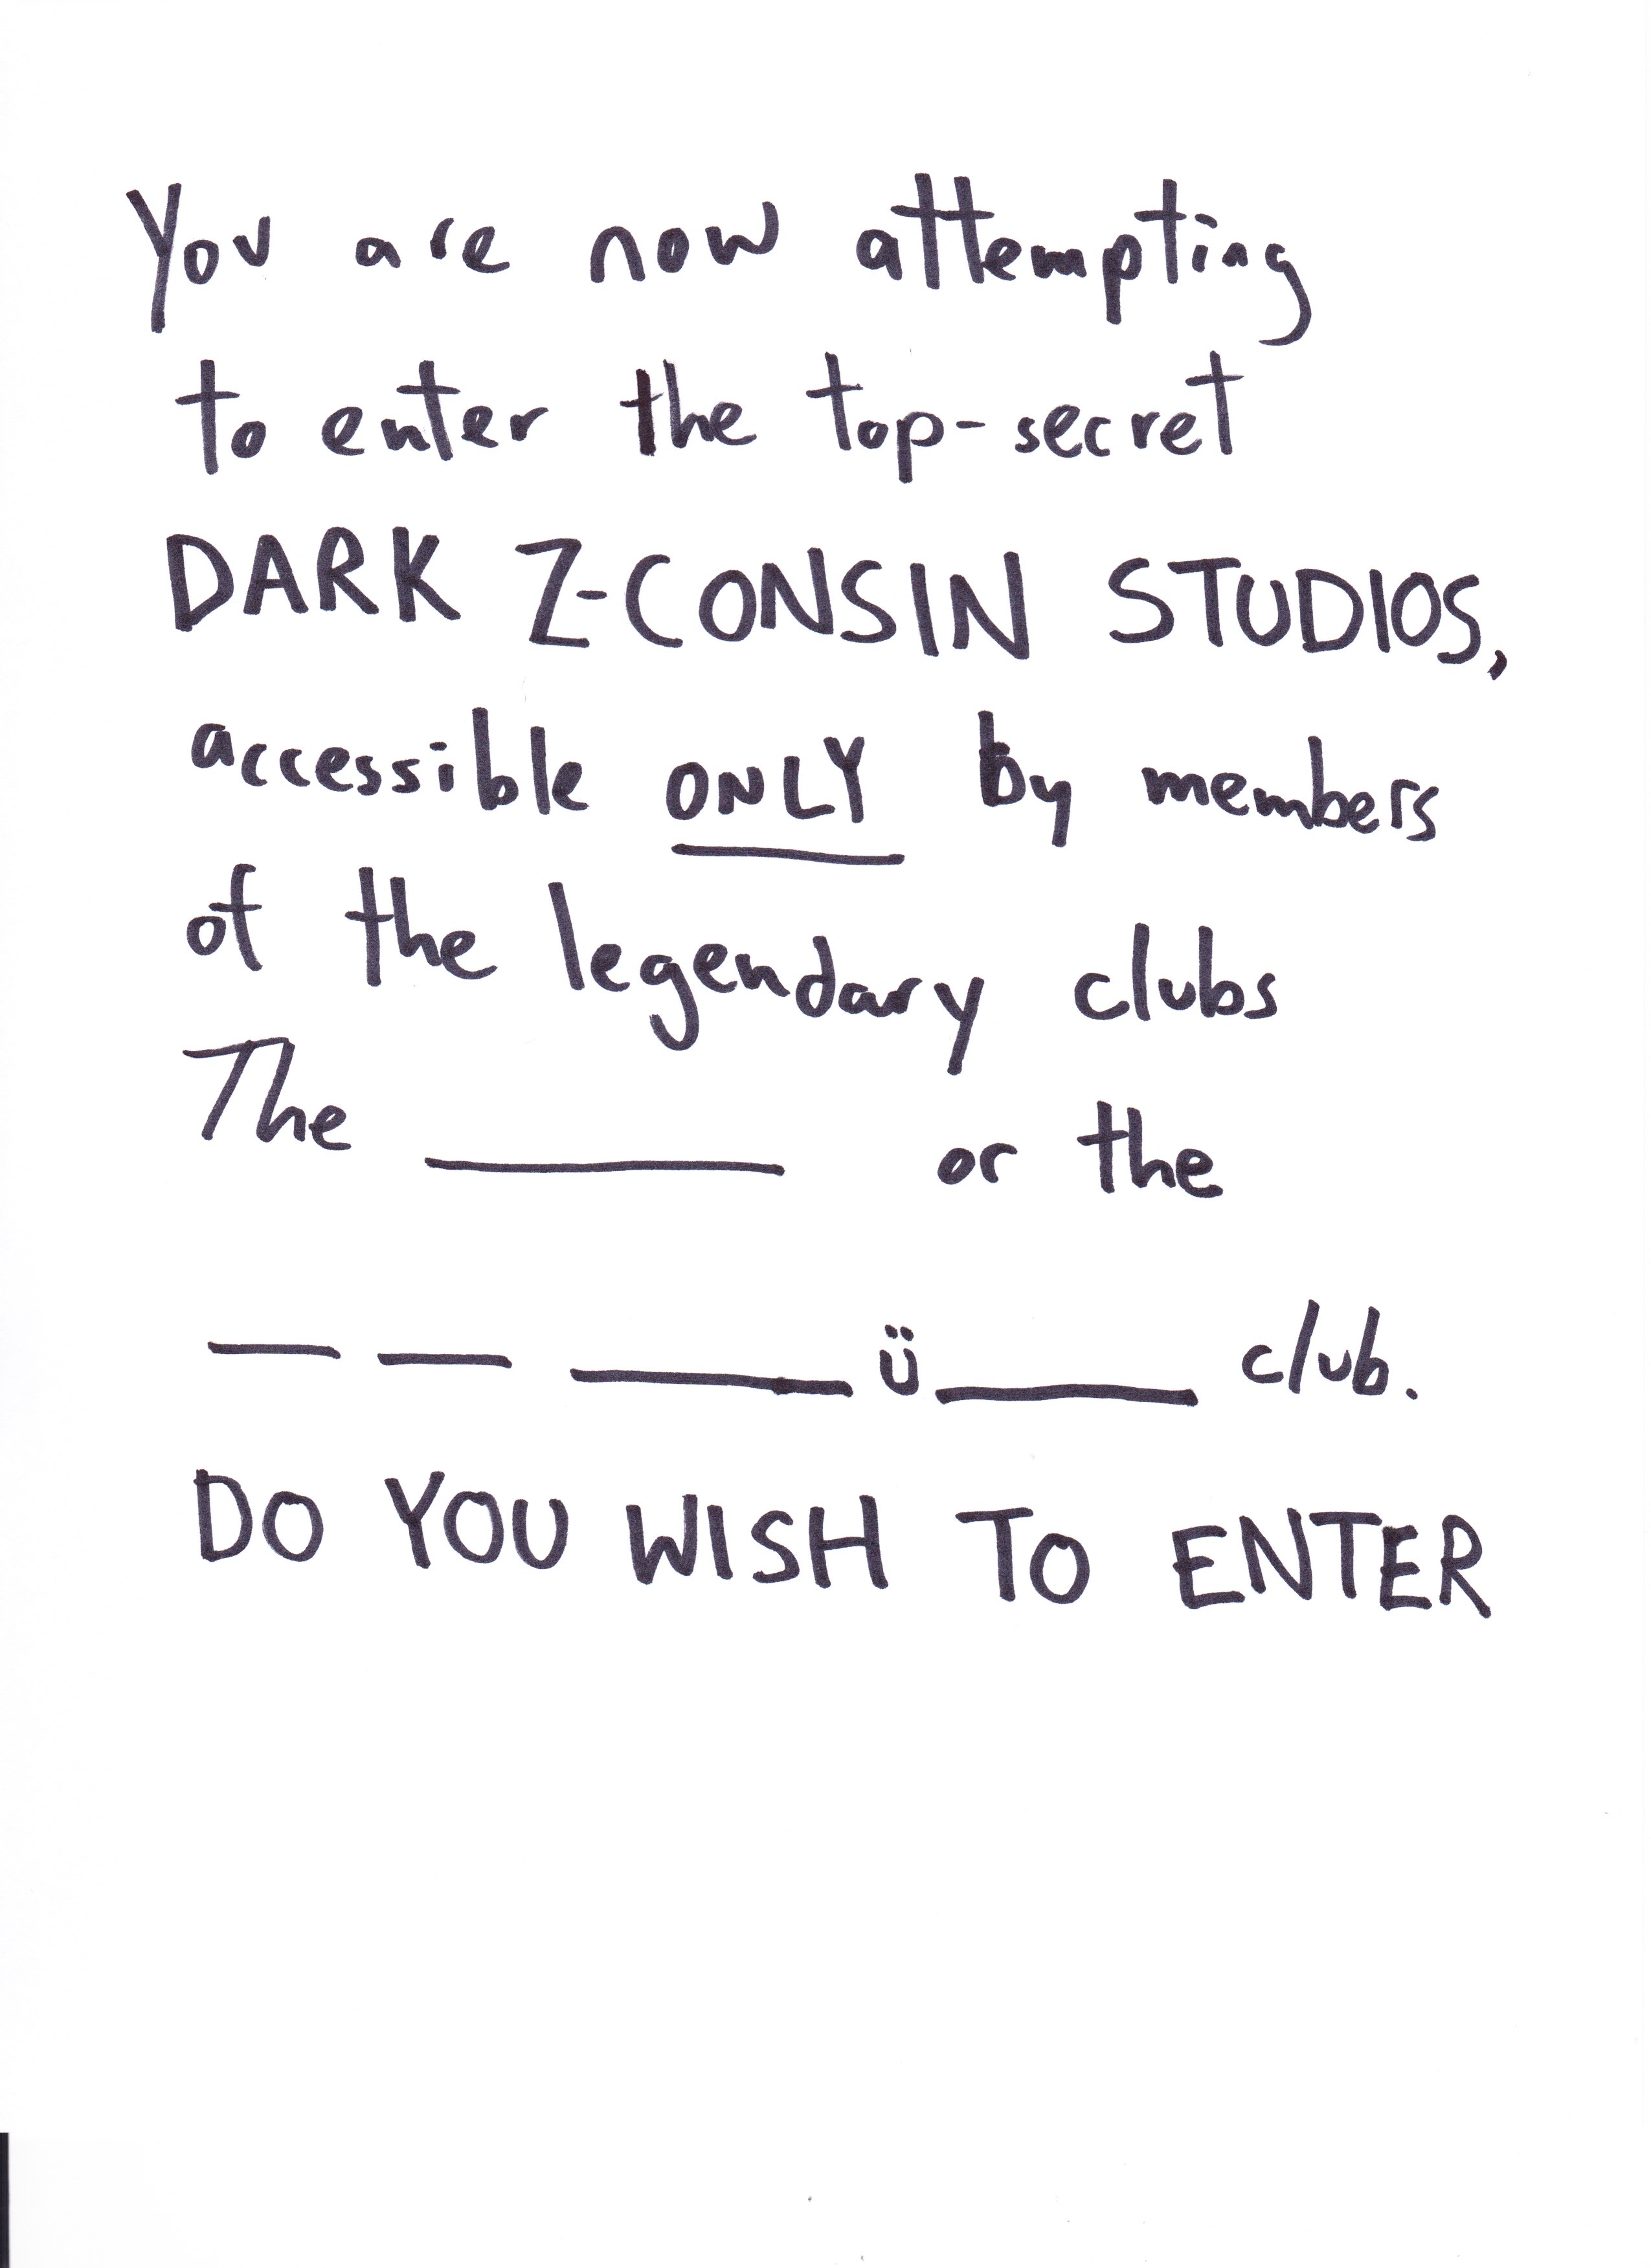 You are now attempting
to enter the top-secret
DARK Z-CONSIN STUDIOS,
accessible ONLY by members
of the legendary clubs
The ______ or the
__ __ ____ü____ club.
DO YOU WISH TO ENTER